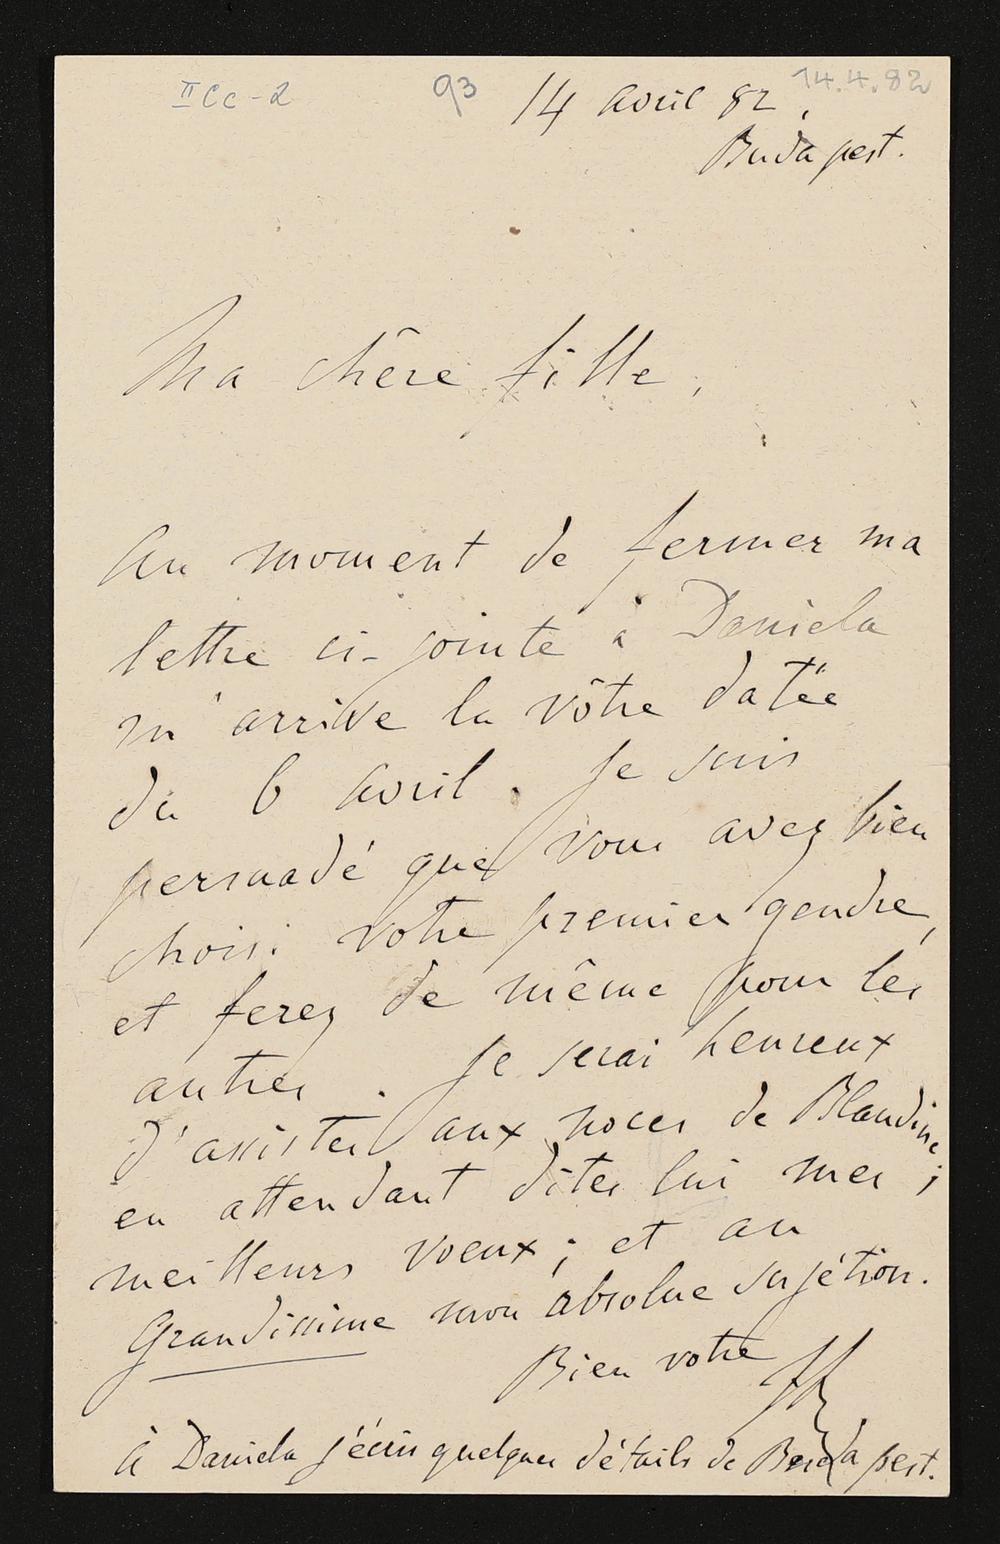 II Cc-2 93 14 avril 82, 14.4.82
Budapest.
Ma chère fille,
Au moment de fermer ma
lettre ci-jointe à Daniela
m'arrive la vôtre datée
du 6 Avril. Je suis
persuadé que vous avez bien
choisi votre premier gendre,
et ferez de même pour les
autres. Je serai heureux
d'assister aux noces de Blandine;
en attendant dites lui mes
meilleurs voeux; et au
Grandissime mon absolue sujétion.
Bien votre
à Daniela j'écris quelques détails de Budapest.